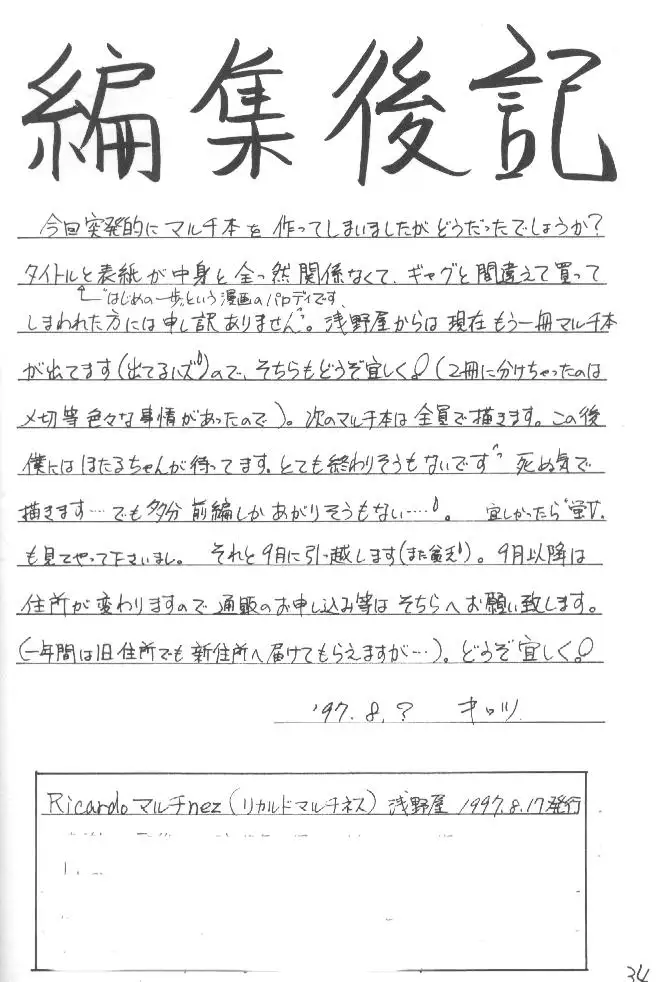 編集後記
今回突発的にマルチ本を作ってしまいましたがどうだったでしょうか?
タイトルと表紙が中身と全っ然関係なくて、ギャグと間違えて買って
"はじめの一歩"という漫画のパロディです、
しまわれた方には申し訳ありません。浅野屋からは現在もう一冊マルチ本
が出てます(出てるハズ)ので、そちらもどうぞ宜しく!(2冊に分けちゃったのは
〆切等色々な事情があったので)。次のマルチ本は全員で描きます。この後
僕にはほたるちゃんが待ってます。とても終わりそうもないです 死ぬ気で
描きます…でも多分前編しかあがりそうもない……。 宜しかったら"蛍Ⅴ"
も見てやって下さいまし。 それと9月に引っ越します(また貧乏)。9月以降は
住所が変わりますので通販のお申し込み等はそちらへお願い致します。
(一年間は旧住所でも新住所へ届けてもらえますが…)。どうぞ宜しく。
'97.8.? キロツ
Ricardo マルチnez (リカルドマルチネス) 浅野屋 1997.8.17発行
34